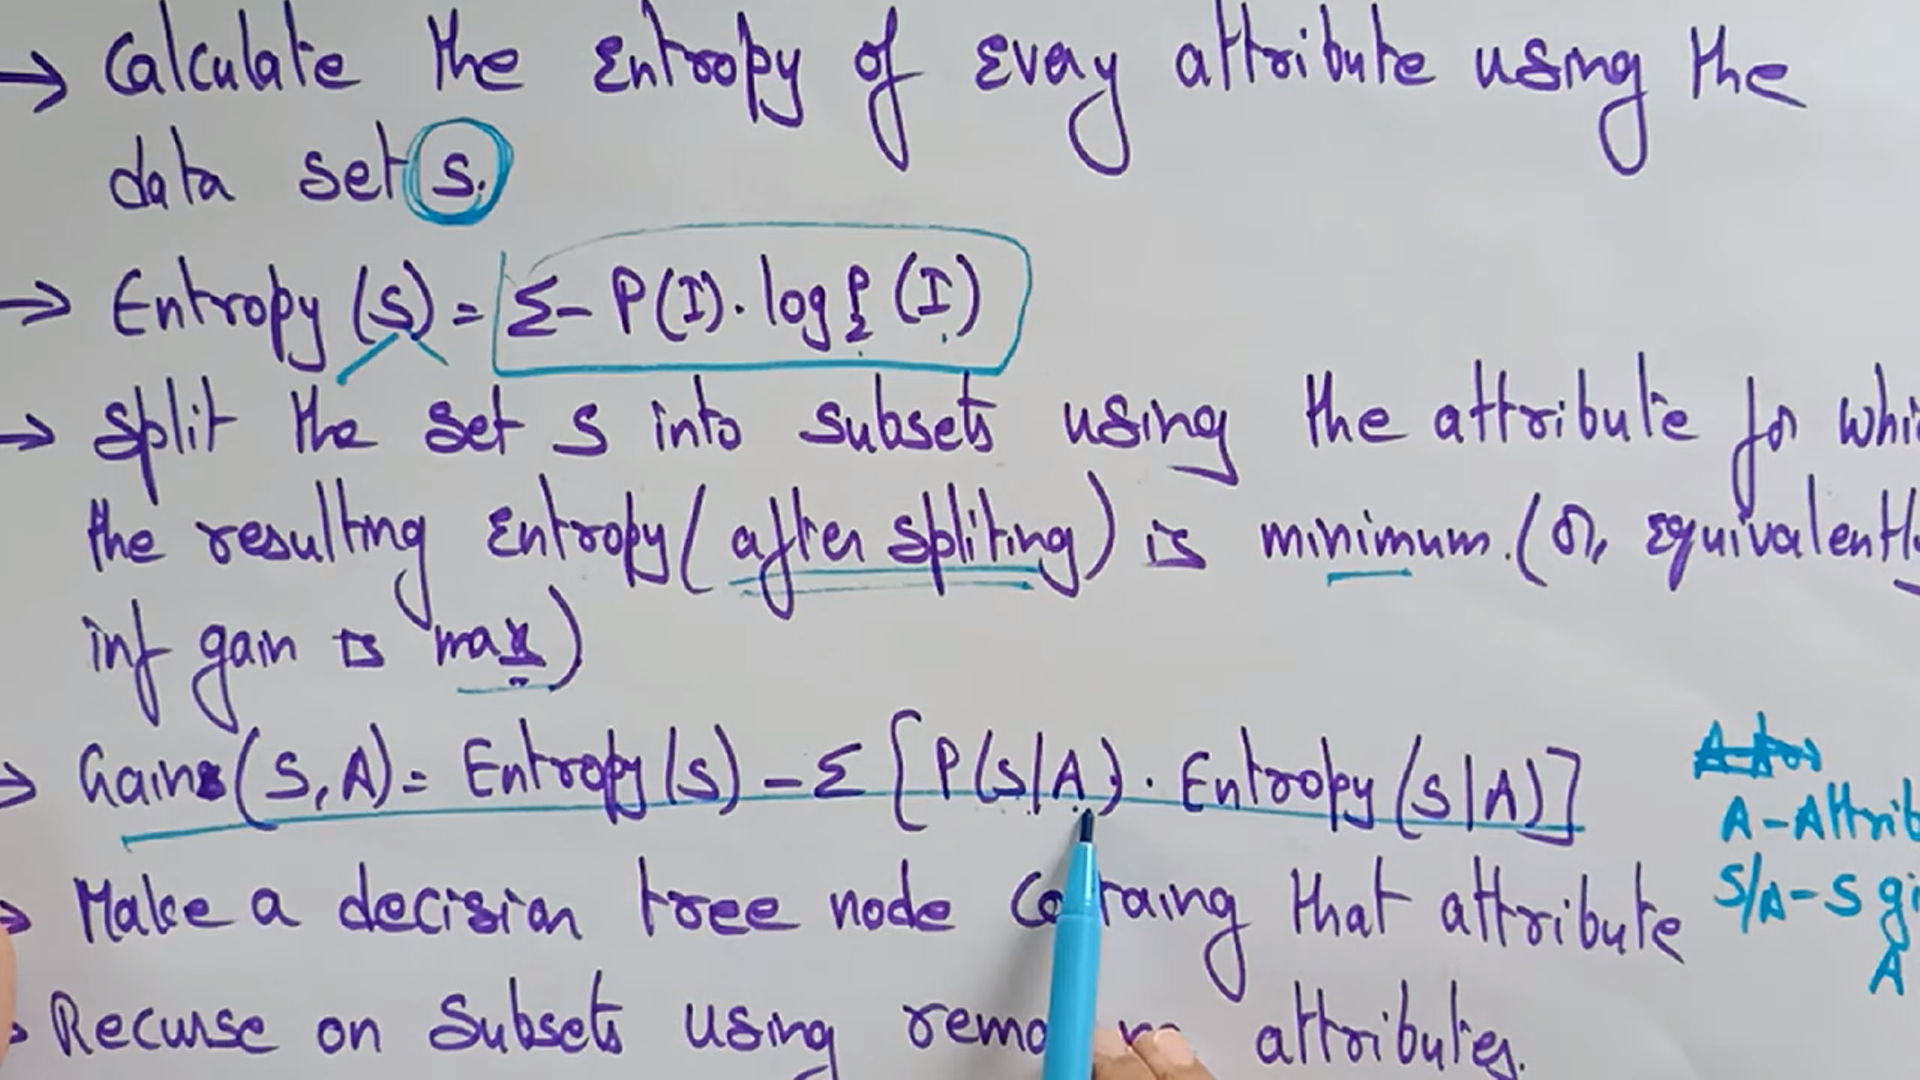 → Calculate the Entropy of Every attribute using the
data set S.
→ Entropy (S) = Σ - P(I). log P2 (I)
→ Split the set S into subsets using the attribute for whi
the resulting Entropy (after spliting) is minimum. (or, equivalently
inf gain is max)
→ Gain(S, A) = Entropy(S) - Σ [P(S|A). Entropy(S|A)]
A - Attrib
S/A - S gi
A
→ Make a decision tree node that attribute
Recurse on subsets using attributes.